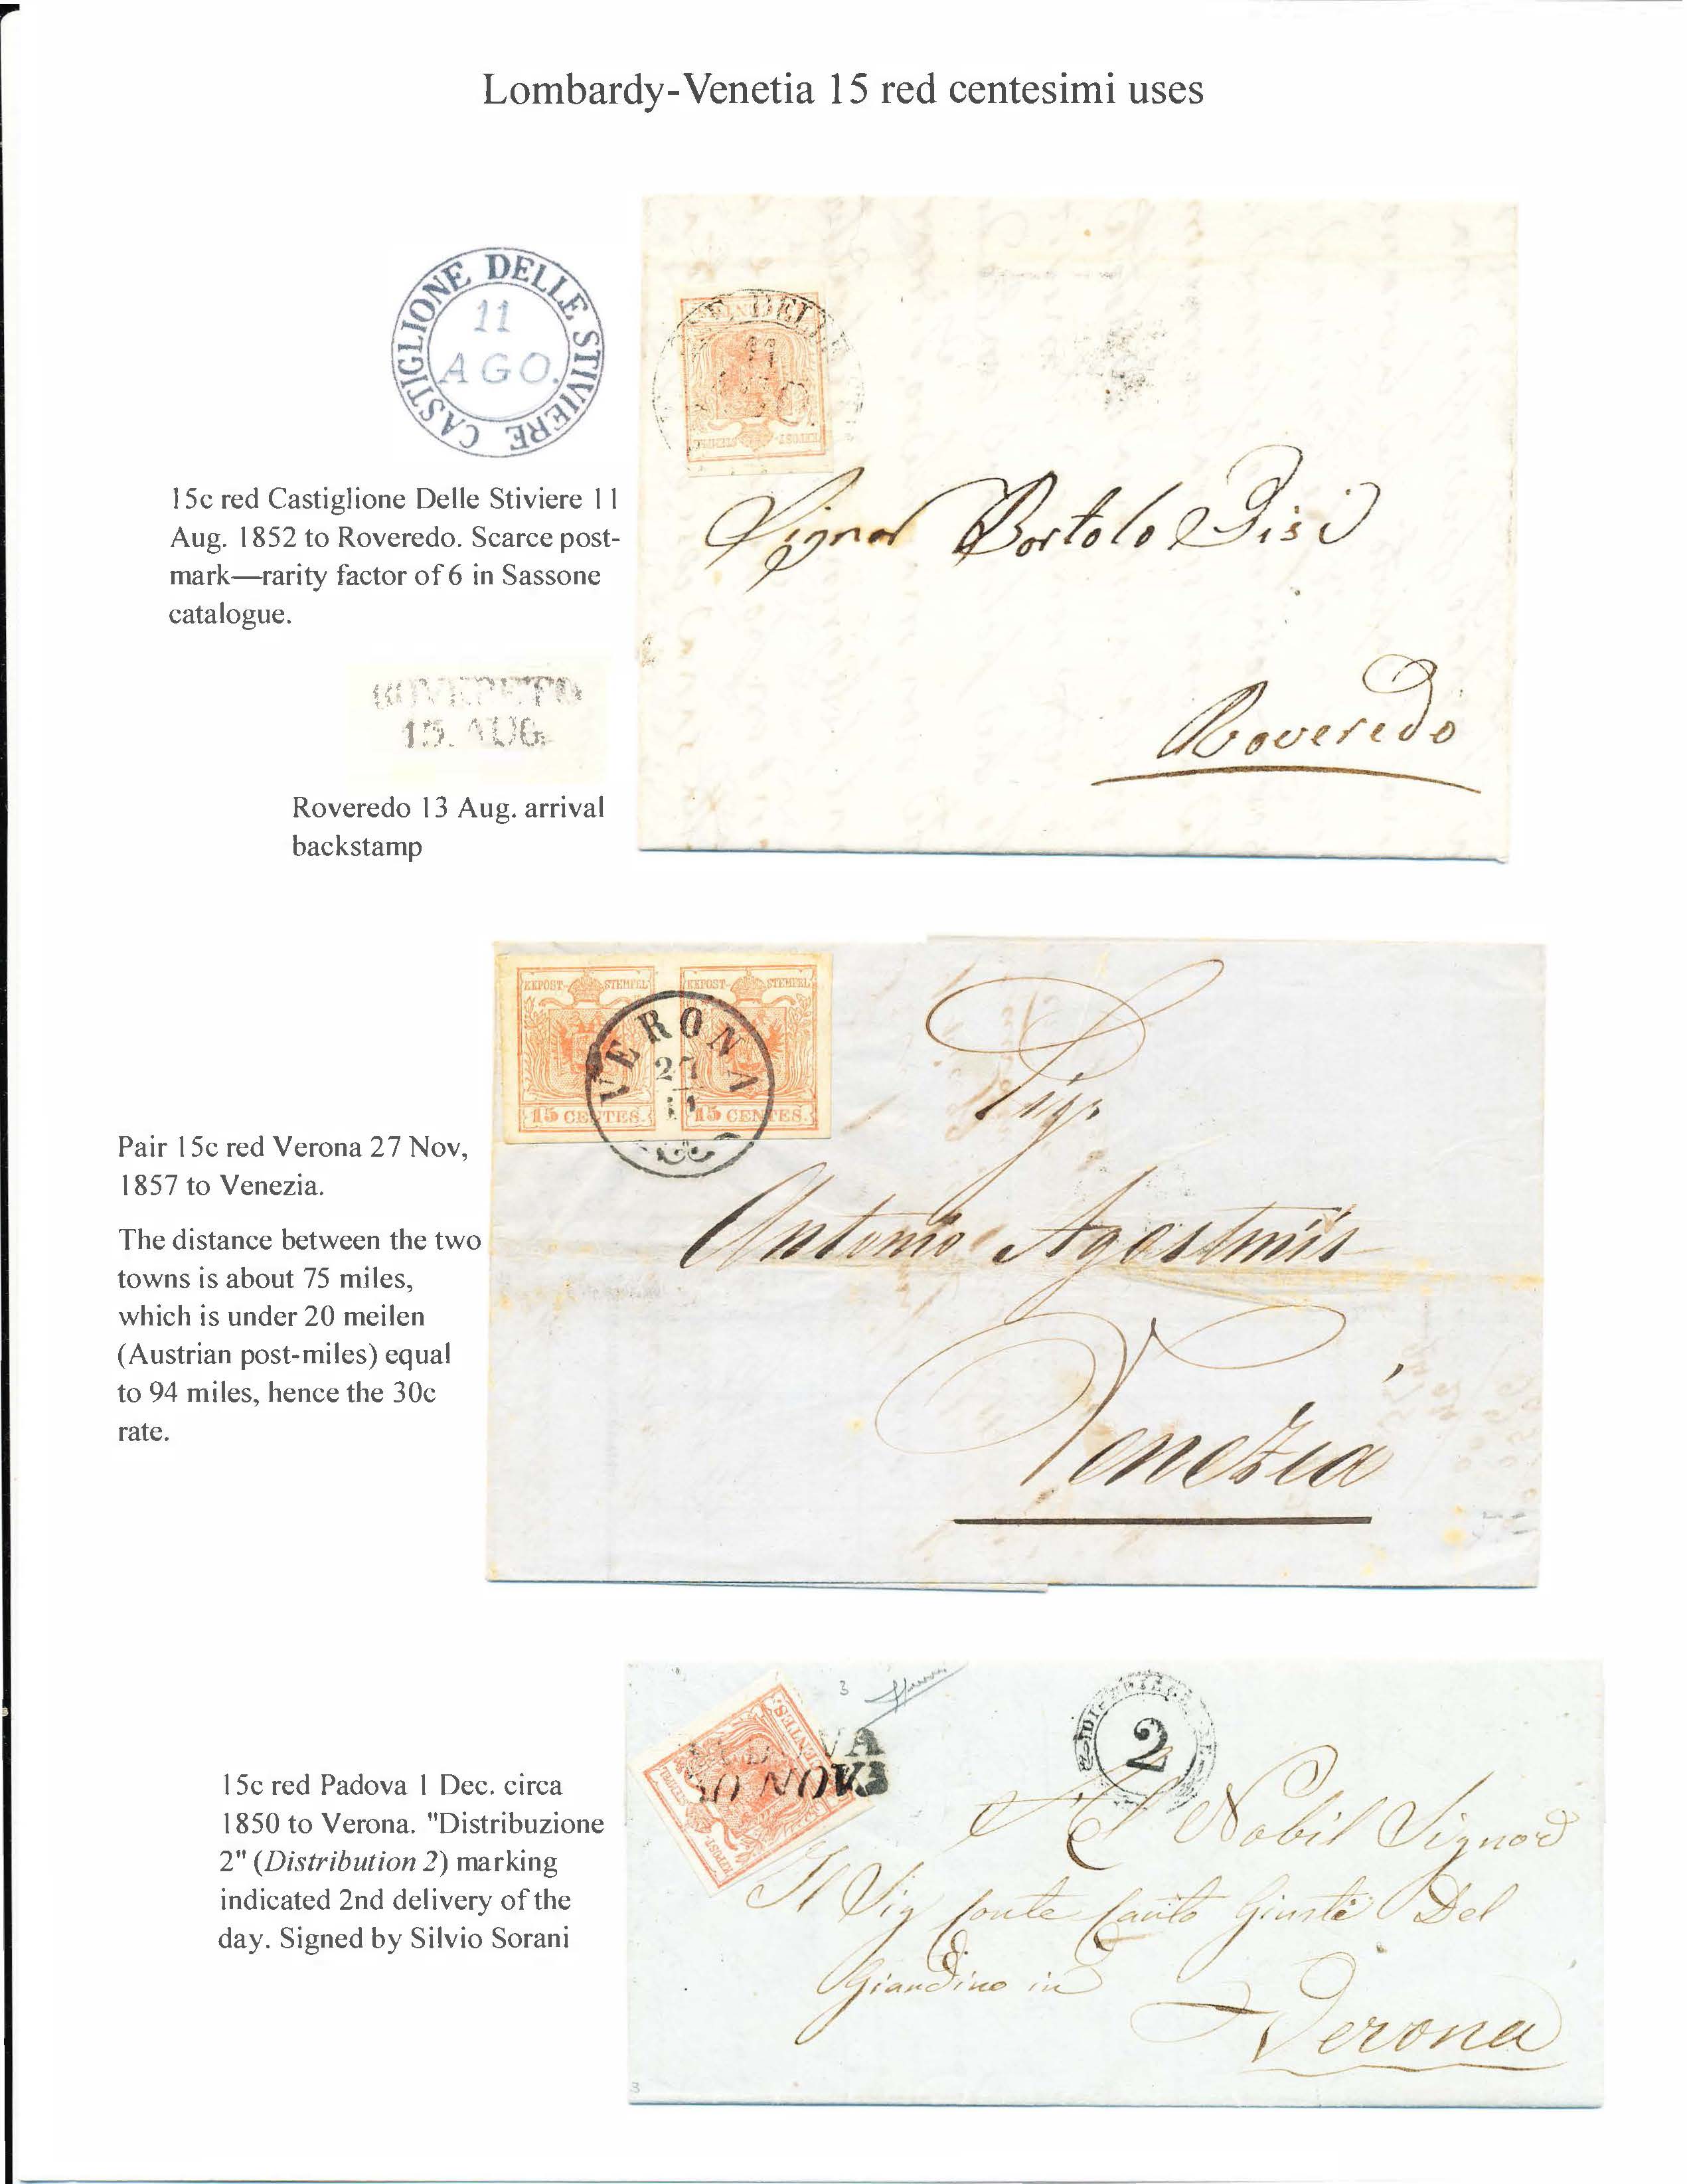 Lombardy-Venetia 15 red centesimi uses
CASTIGLIONE DELLE STIVIERE
11
AGO.
15c red Castiglione Delle Stiviere 11
Aug. 1852 to Roveredo. Scarce post-
mark—rarity factor of 6 in Sassone
catalogue.
ROVERETO
13. AUG.
Roveredo 13 Aug. arrival
backstamp
DELLE
11
AGO.
KKPOST- STEMPEL
Signor Bortolo Gisi
Roveredo
Pair 15c red Verona 27 Nov,
1857 to Venezia.
The distance between the two
towns is about 75 miles,
which is under 20 meilen
(Austrian post-miles) equal
to 94 miles, hence the 30c
rate.
KKPOST- STEMPEL KKPOST- STEMPEL
VERONA
27
11
15 CENTES. 15 CENTES.
Sigr
Antonio Agostinis
Venezia
15c red Padova 1 Dec. circa
1850 to Verona. "Distribuzione
2" (Distribution 2) marking
indicated 2nd delivery of the
day. Signed by Silvio Sorani
3
CENTES.
KKPOST- STEMPEL
NOVE
2
Al Nobil Signor
Il Sig Conte Giusti Del
Giardino in
Verona
3